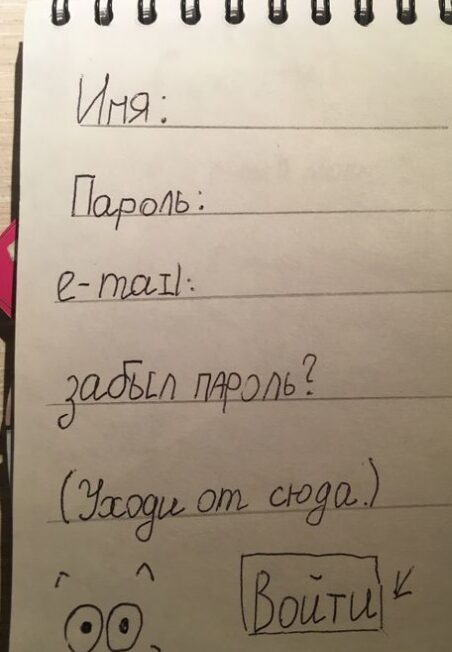 Имя:
Пароль:
e-mail:
забыл пароль?
(Уходи от сюда.)
Войти